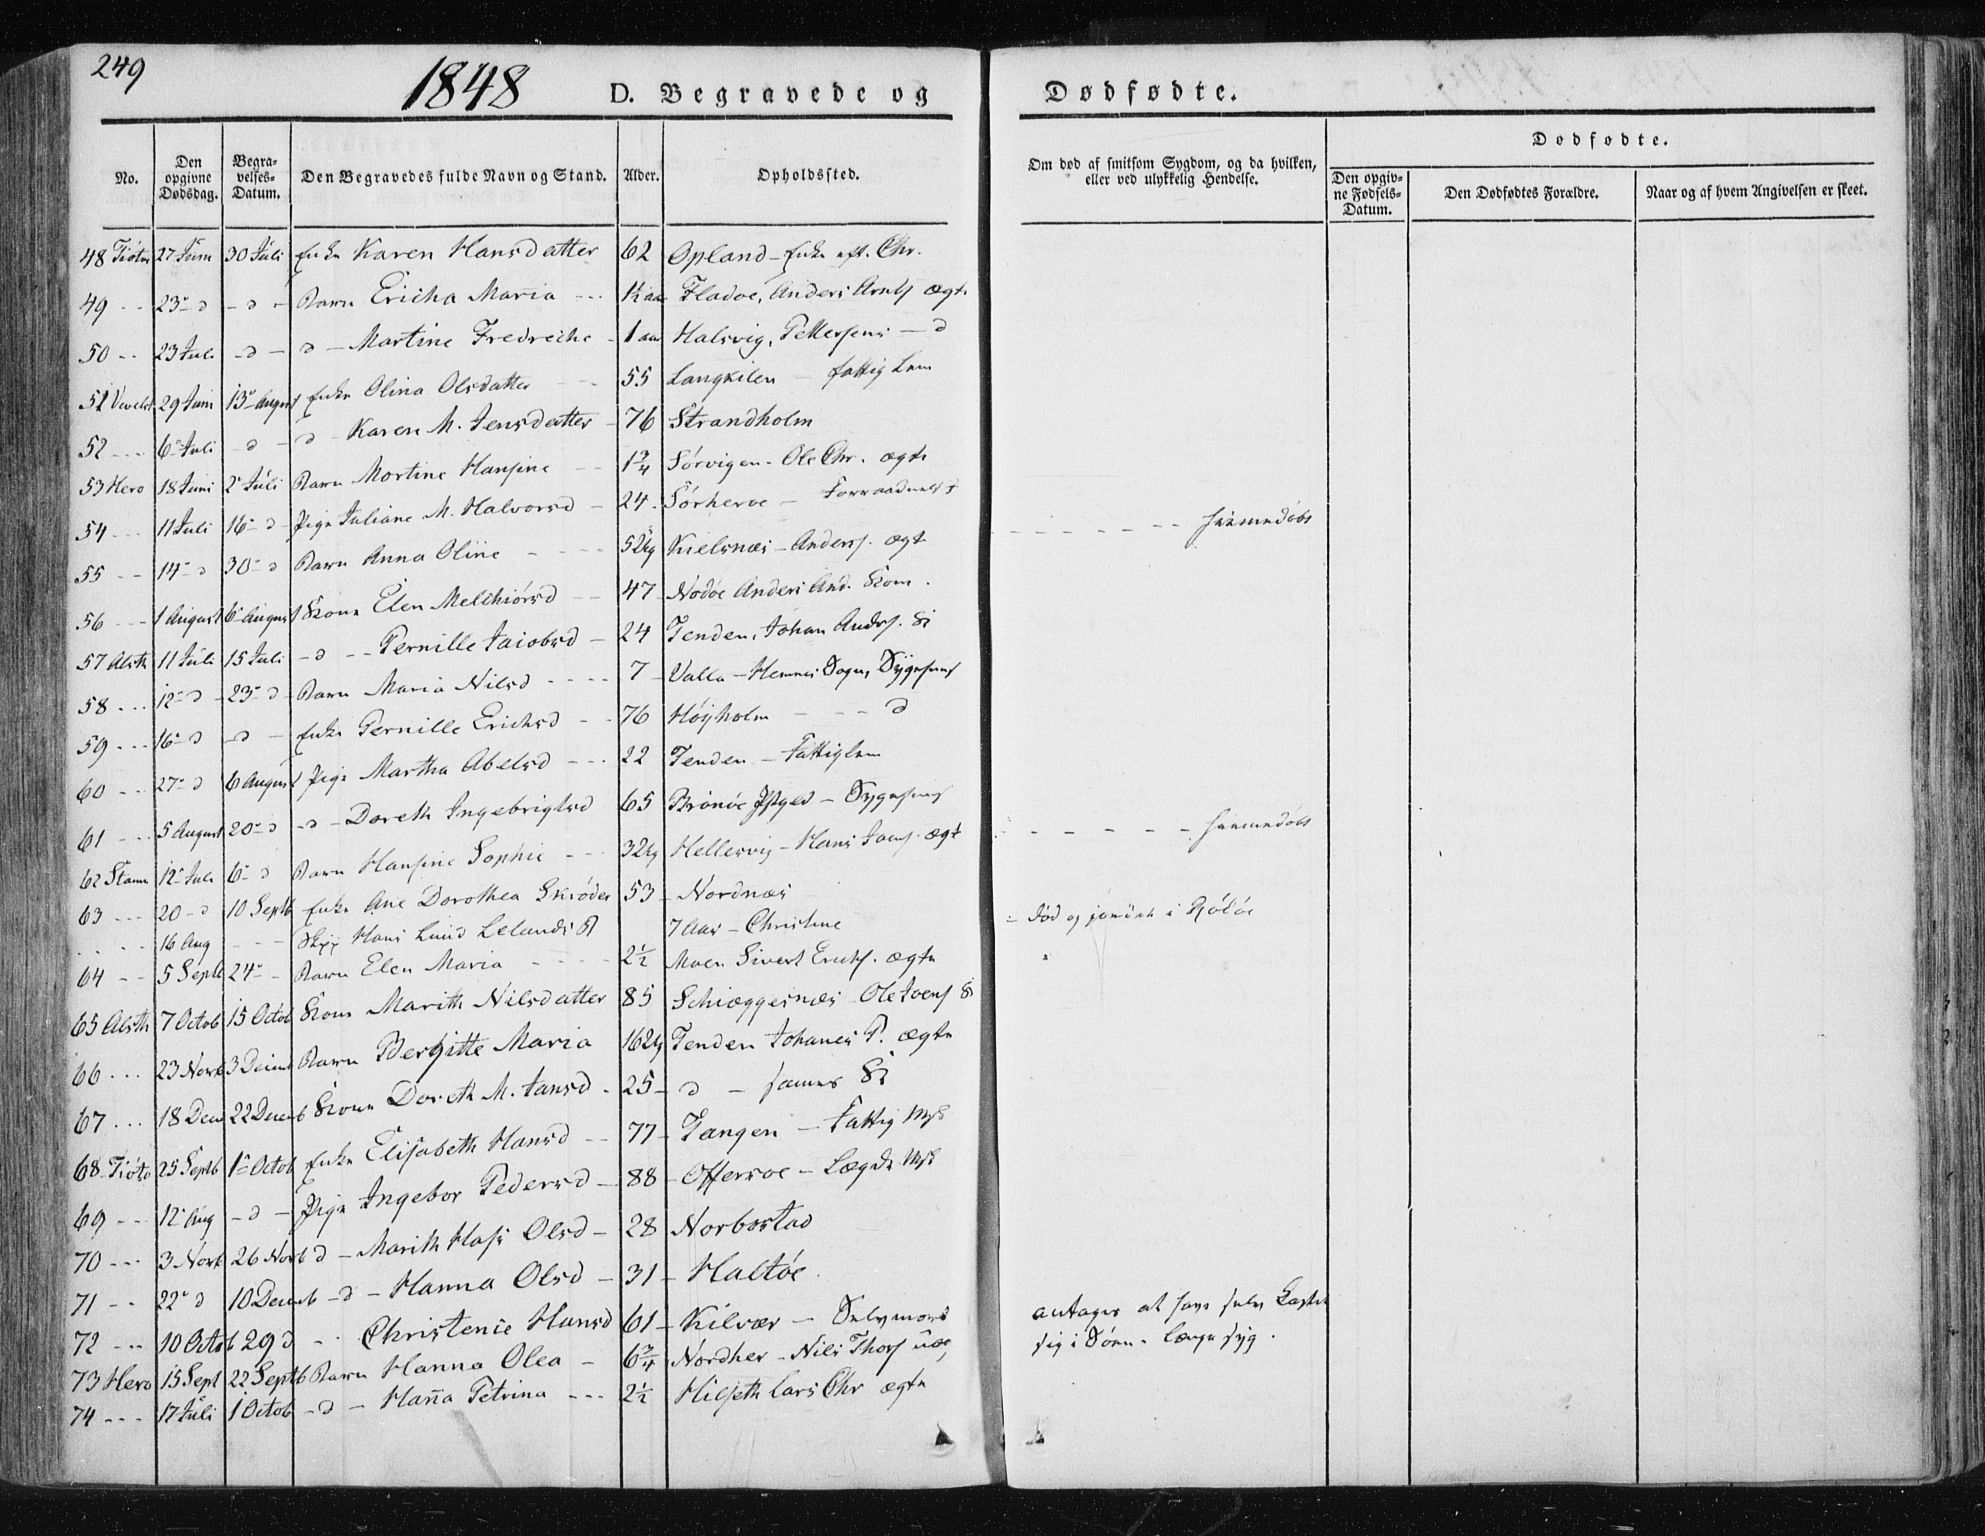 249
1848 D. Begravede og Dødfødte.
No.
Den opgivne Dødsdag.
Begravelses-Datum.
Den Begravedes fulde Navn og Stand.
Alder.
Opholdssted.
Om død af smitsom Sygdom, og da hvilken, eller ved ulykkelig Hendelse.
Dødfødte.
Den opgivne Fødsels-Datum.
Den Dødfødtes Forældre.
Naar og af hvem Angivelsen er skeet.
48 Tiøtø 27 Juni 30 Juli Enke Karen Hansdatter 62 Opland - Enke eft. Chr.
49 - - 23 - d - d - Barn Ericha Maria - - - 1½ aar Fladøe, Anders Arntz ægte
50 - - 23 Juli - d - d - Martine Fredreche - 1 aar Halsvig, Pettersens - d
51 Vevelst 29 Juni 13 August Enke Olina Olsdatter - - - 55 Langkilen - fattig Lem
52 - - - 6 Juli - d - d - Karen M. Jensdatter - 76 Strandholm
53 Herø 18 Juni 2 Juli Barn Mortine Hansine - - 1¾ Sörvigen - Ole Chr. ægte
54 - - - 11 Juli 16 - d Pige Juliane M. Halvorsd - 24 Sörherøe -
55 - - 14 - d 30 - d Barn Anna Oline - - - - 5 Ug Kielsnæs - Anders. ægt hiemmedøbt
56 - - - 1 August 6 August Kone Elen Melchiörsd - - 47 Nødøe Anders And. Kone.
57 Alsth 11 Juli 15 Juli - d - - Pernille Jacobsd - 24 Tenden, Johan Anders. K
58 - - - 12 - d - 23 - d - Barn Maria Nilsd - - - - 7 - Valla - Hemnes Sogn,
59 - - - 16 - d - d - Enke Pernille Erichsd - - 76 Höyholm - - - d
60 - - 27 - d 6 August Pige Martha Abelsd - - - 22 Tenden - Fattiglem
61 - - - 5 August 20 - d - d - Doreth Ingebrigtsd 65 Brönöe Pstgld -
62 Stamn 12 Juli 6 - d Barn Hansine Sophie - - - 3 Ug Hellesvig - Hans Jac. ægt - - - - - hiemmedøbt
63 - - - 20 - d 10 Septb Enke Ane Dorothea Skröder 53 - Nordnæs
- - - 16 Aug - - - Hans Lund Lelands 7 Aar - Christine - død og jordet i Rödöe
64 - - 5 Septb 24 - - Barn Elen Maria - - - - 2½ Moen Sivert Erichs. ægte
65 Alsth 7 Octob 15 Octob Kone Marith Nilsdatter 85 Schiæggesnæs Ole Joens K
66 - - - 23 Novb 3 Decemb Barn Bergitte Maria 16 Ug Tenden Johanes P. ægte
67 - - - 18 Dec 22 Decemb Kone Doreth M. Jansd - 25 - d - sammes K
68 Tiøtø 25 Septb 1 Octob Enke Elisabeth Hansd - - 77 - Tangen - Fattig
69 - - - 12 Aug - d - Pige Ingebor Pedersd - 88 - Offersøe - Lægds
70 - - - 3 Novb 26 Novb d - Marith Olsd - 28 Norbostad
71 - - 22 d 10 Decemb - d - Hanna Olsd - 31 - Haltöe
72 - - - 10 Octob 29 d - - Christence Hansd 61 - Kilvær - Selvmord antages at have selv kastet
73 Herø 15 Sept 22 Septb Barn Hanna Olea - 6¾ Nordher - Nils Thors uæ, sig i Söen - længe syg.
74 - - - 17 Juli 1 Octob - d - Hanna Petrina - - - 2½ Hilseth Lars Chr ægte